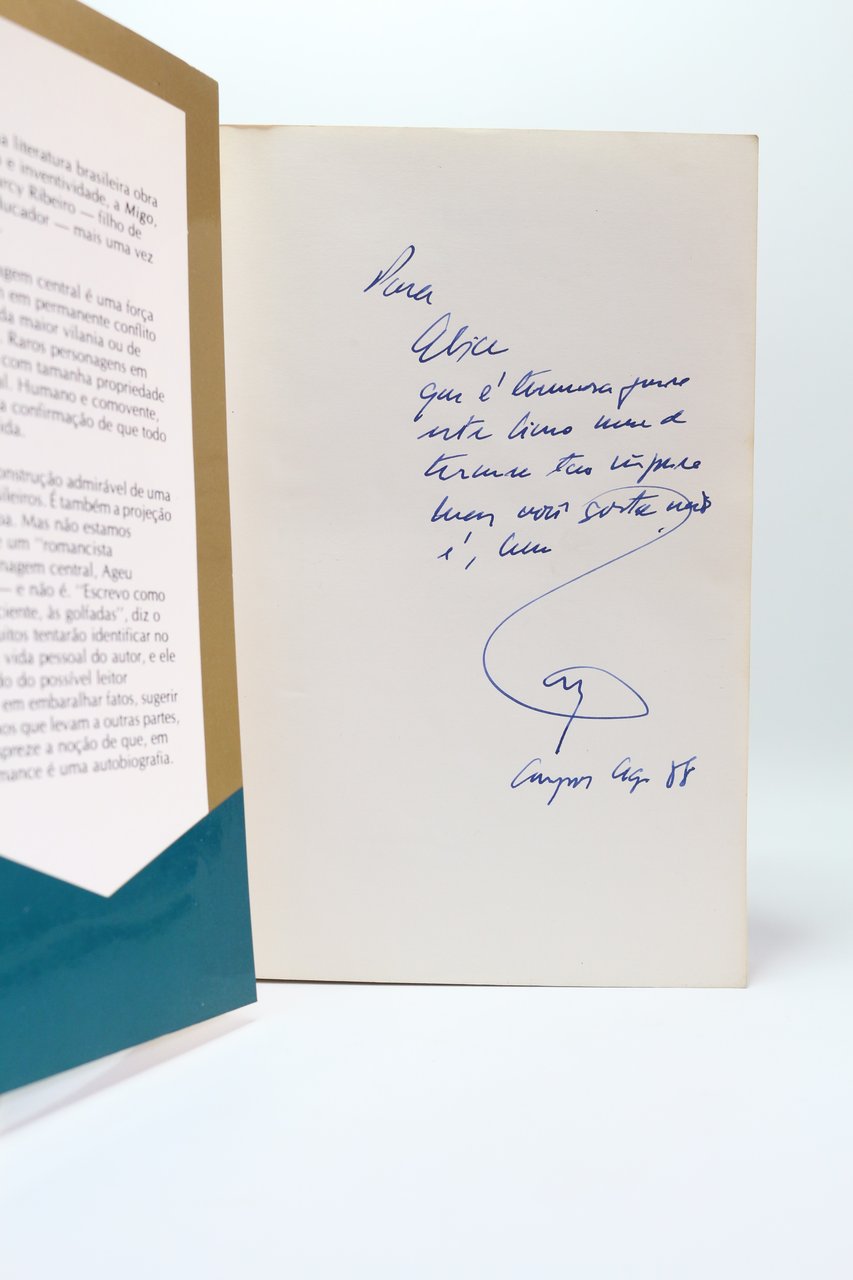 a literatura brasileira obra
e inventividade, a Migo,
rcy Ribeiro — filho de
ducador — mais uma vez
agem central é uma força
em permanente conflito
da maior vilania ou de
. Raros personagens em
com tamanha propriedade
al. Humano e comovente,
a confirmação de que todo
ida.
onstrução admirável de uma
sileiros. É também a projeção
ia. Mas não estamos
e um "romancista
nagem central, Ageu
— e não é. "Escrevo como
ciente, às golfadas", diz o
uitos tentarão identificar no
vida pessoal do autor, e ele
do do possível leitor
em embaralhar fatos, sugerir
hos que levam a outras partes,
spreze a noção de que, em
mance é uma autobiografia.
Para
Alice
que é ternura pura
este livro meu de
ternura tão impura
bem você gosta não
é,
Campos Ago 88